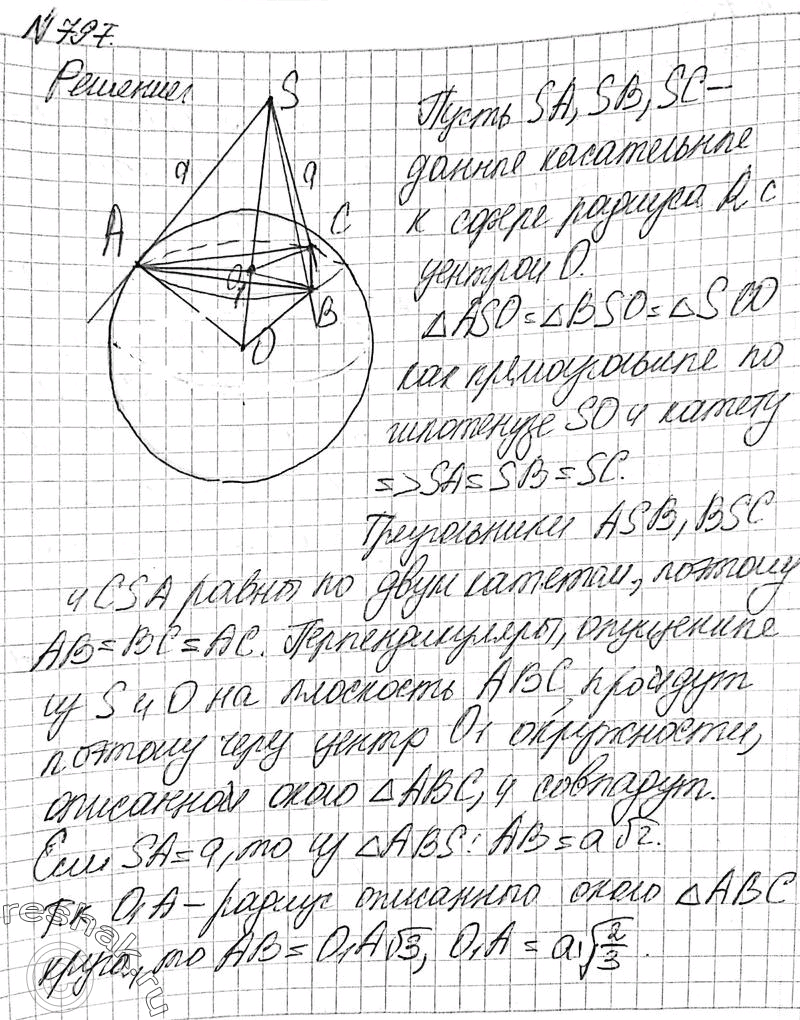 N 797.
Решение:
S
a
a
A
C
O₁
B
O
Пусть SA, SB, SC –
данные касательные
к сфере радиуса R с
центром O.
△ASO = △BSO = △SCO
как прямоугольные по
гипотенузе SO и катету
=> SA = SB = SC.
Треугольники ASB, BSC
и CSA равны по двум катетам, поэтому
AB = BC = AC. Перпендикуляры, опущенные
из S и O на плоскость ABC, пройдут
поэтому через центр O₁ окружности,
описанной около △ABC, и совпадут.
Если SA = a, то из △ABS: AB = a√2.
Т.к. O₁A – радиус описанного около △ABC
круга, то AB = O₁A√3, O₁A = a·√2/3.
reshak.ru